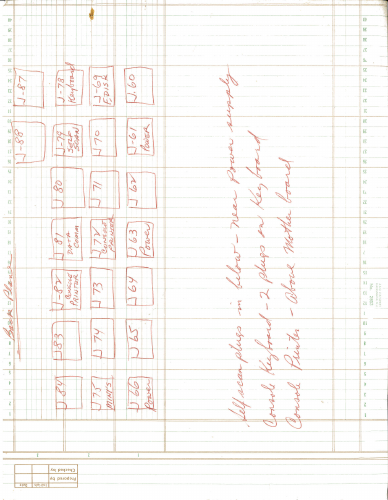 Back Plane
J-87
J-88
J-78
Keyboard
J-79
Self
Scan
J 80
J 81
Data
Comm
J-82
Console
Printer
J 83
J 84
J-69
F.Disk
J 70
J 71
J 72
Console
Printer
J 73
J 74
J 75
J 60
J-61
Power
J 62
J 63
Power
J 64
J 65
J 66
Power
Self scan plugs in below - near Power supply
Console Keyboard - 2 plugs on Keyboard
Console Printer - above Mother board
Prepared by
Checked by
Initials
Date